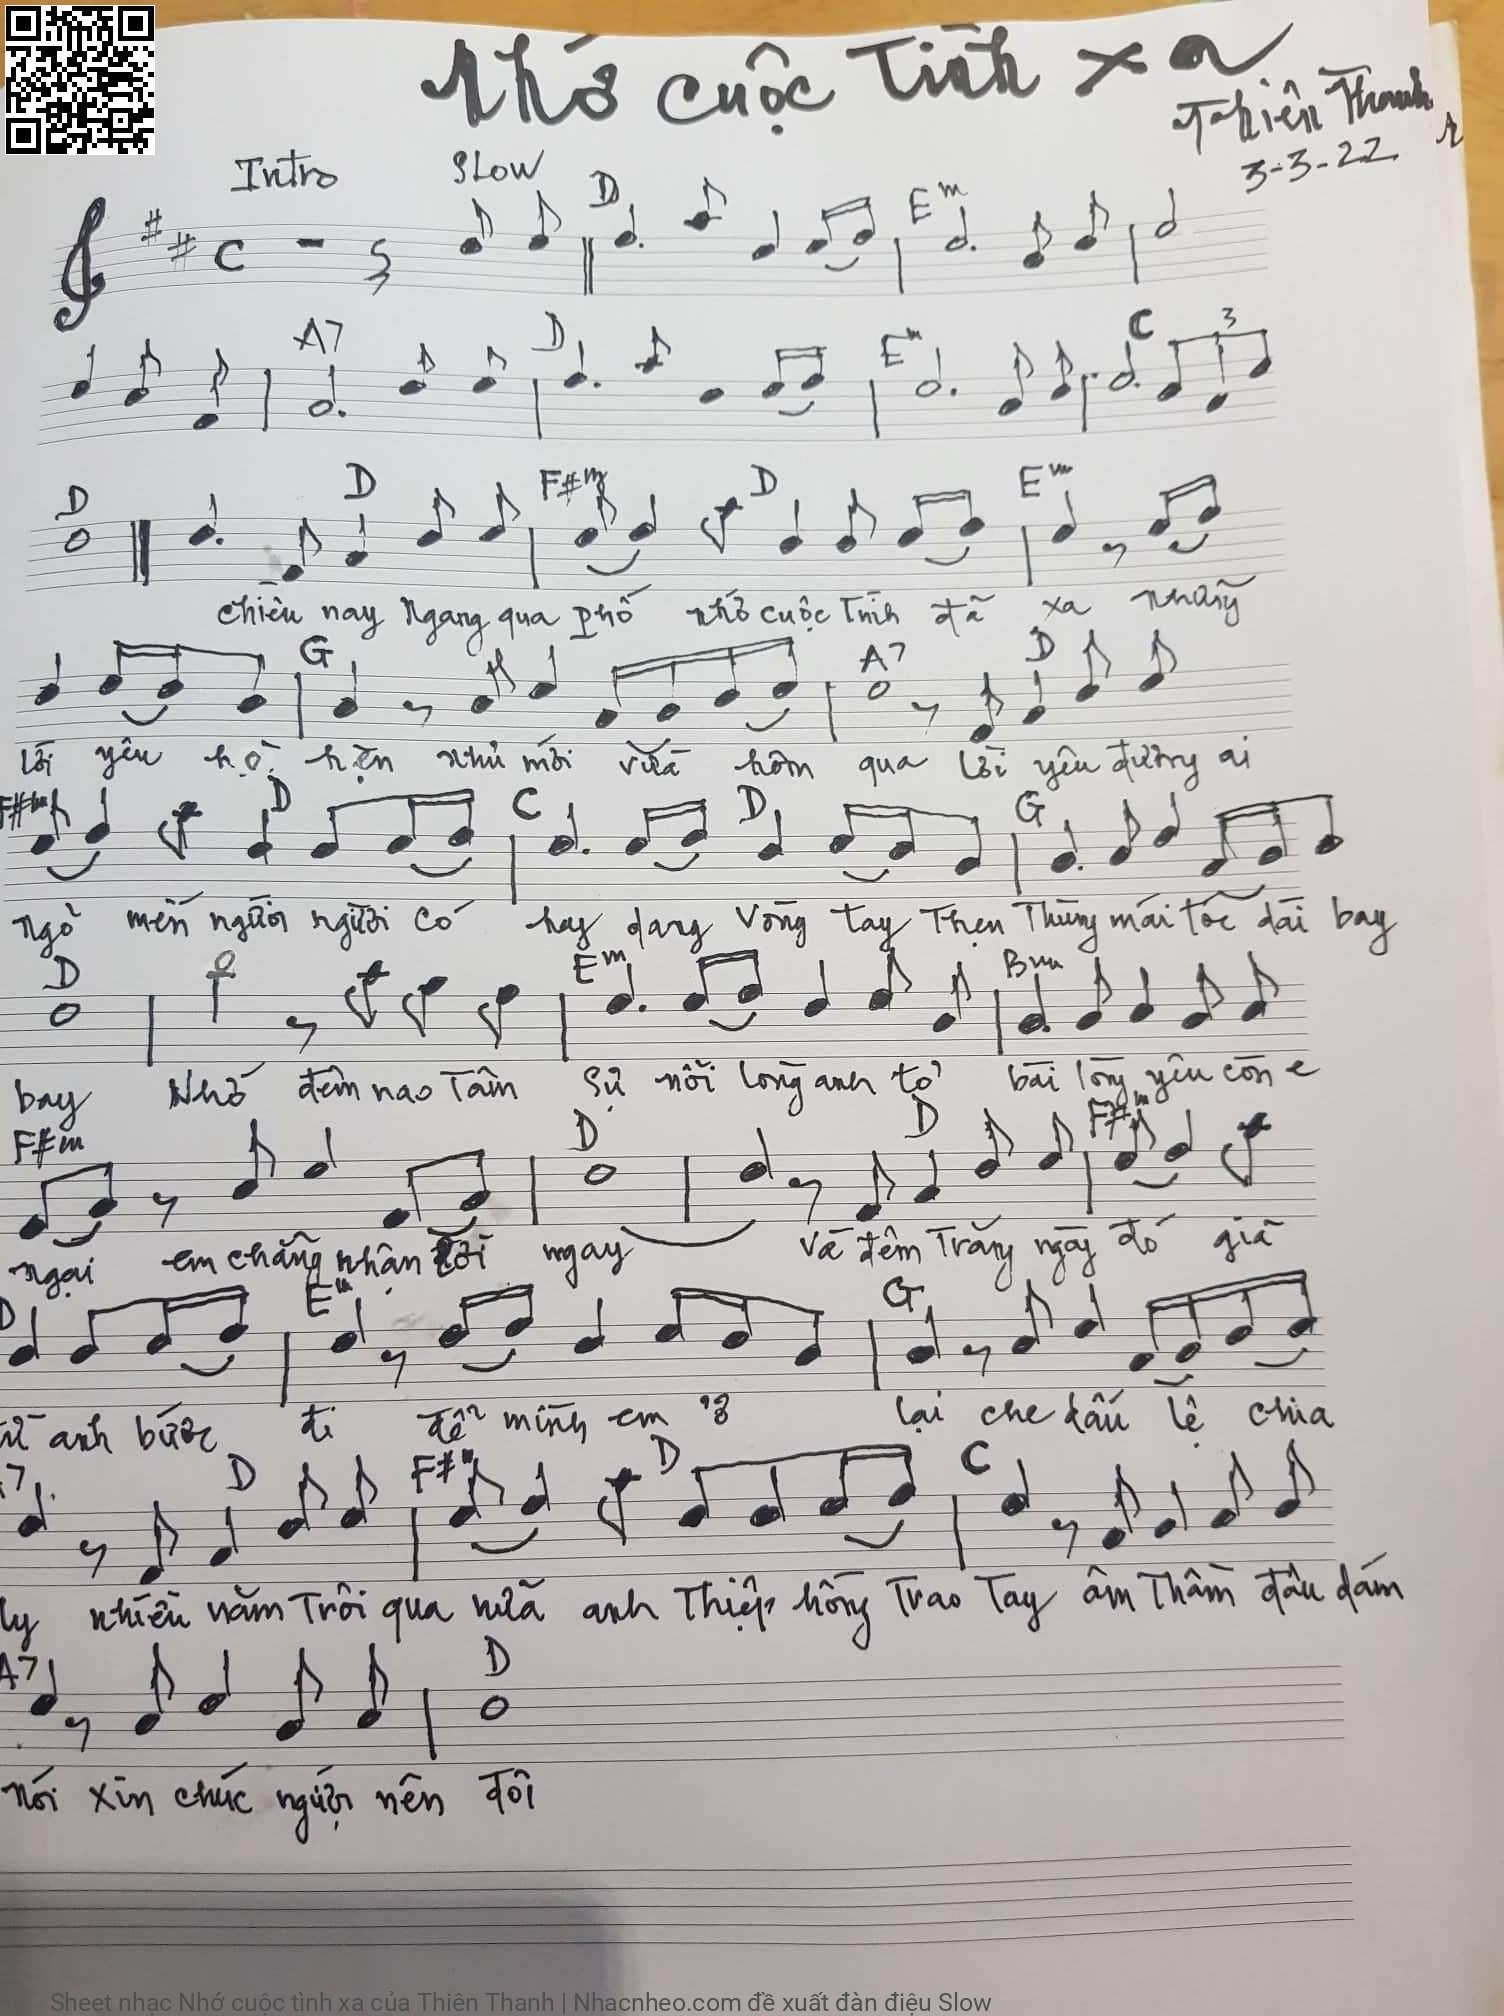 Nhớ cuộc Tình xa
Thiên Thanh
3-3-22
Intro SLOW D Em
C
A7 D Em C 3
D D F#m D Em
chiều nay ngang qua phố nhớ cuộc Tình đã xa những
G A7 D
lời yêu hẹn như mới vừa hôm qua lời yêu đương ai
F#m D C D G
ngỏ mến người người có hay dang vòng tay Thẹn Thùng mái tóc dài bay
D Em Bm
bay Nhớ đêm nao Tâm sự nỗi lòng anh tỏ bài lòng yêu còn e
F#m D D F#m
ngại em chẳng nhận lời ngay Và đêm Trăng ngày đó giã
D Em G
từ anh bước đi để mình em ở lại che dấu lệ chia
A7 D F#m D C
ly nhiều năm Trôi qua nữa anh Thiệp hồng Trao Tay âm Thầm đâu dám
A7 D
nói xin chúc người nên đôi
Sheet nhạc Nhớ cuộc tình xa của Thiên Thanh | Nhacnheo.com đề xuất đàn điệu Slow